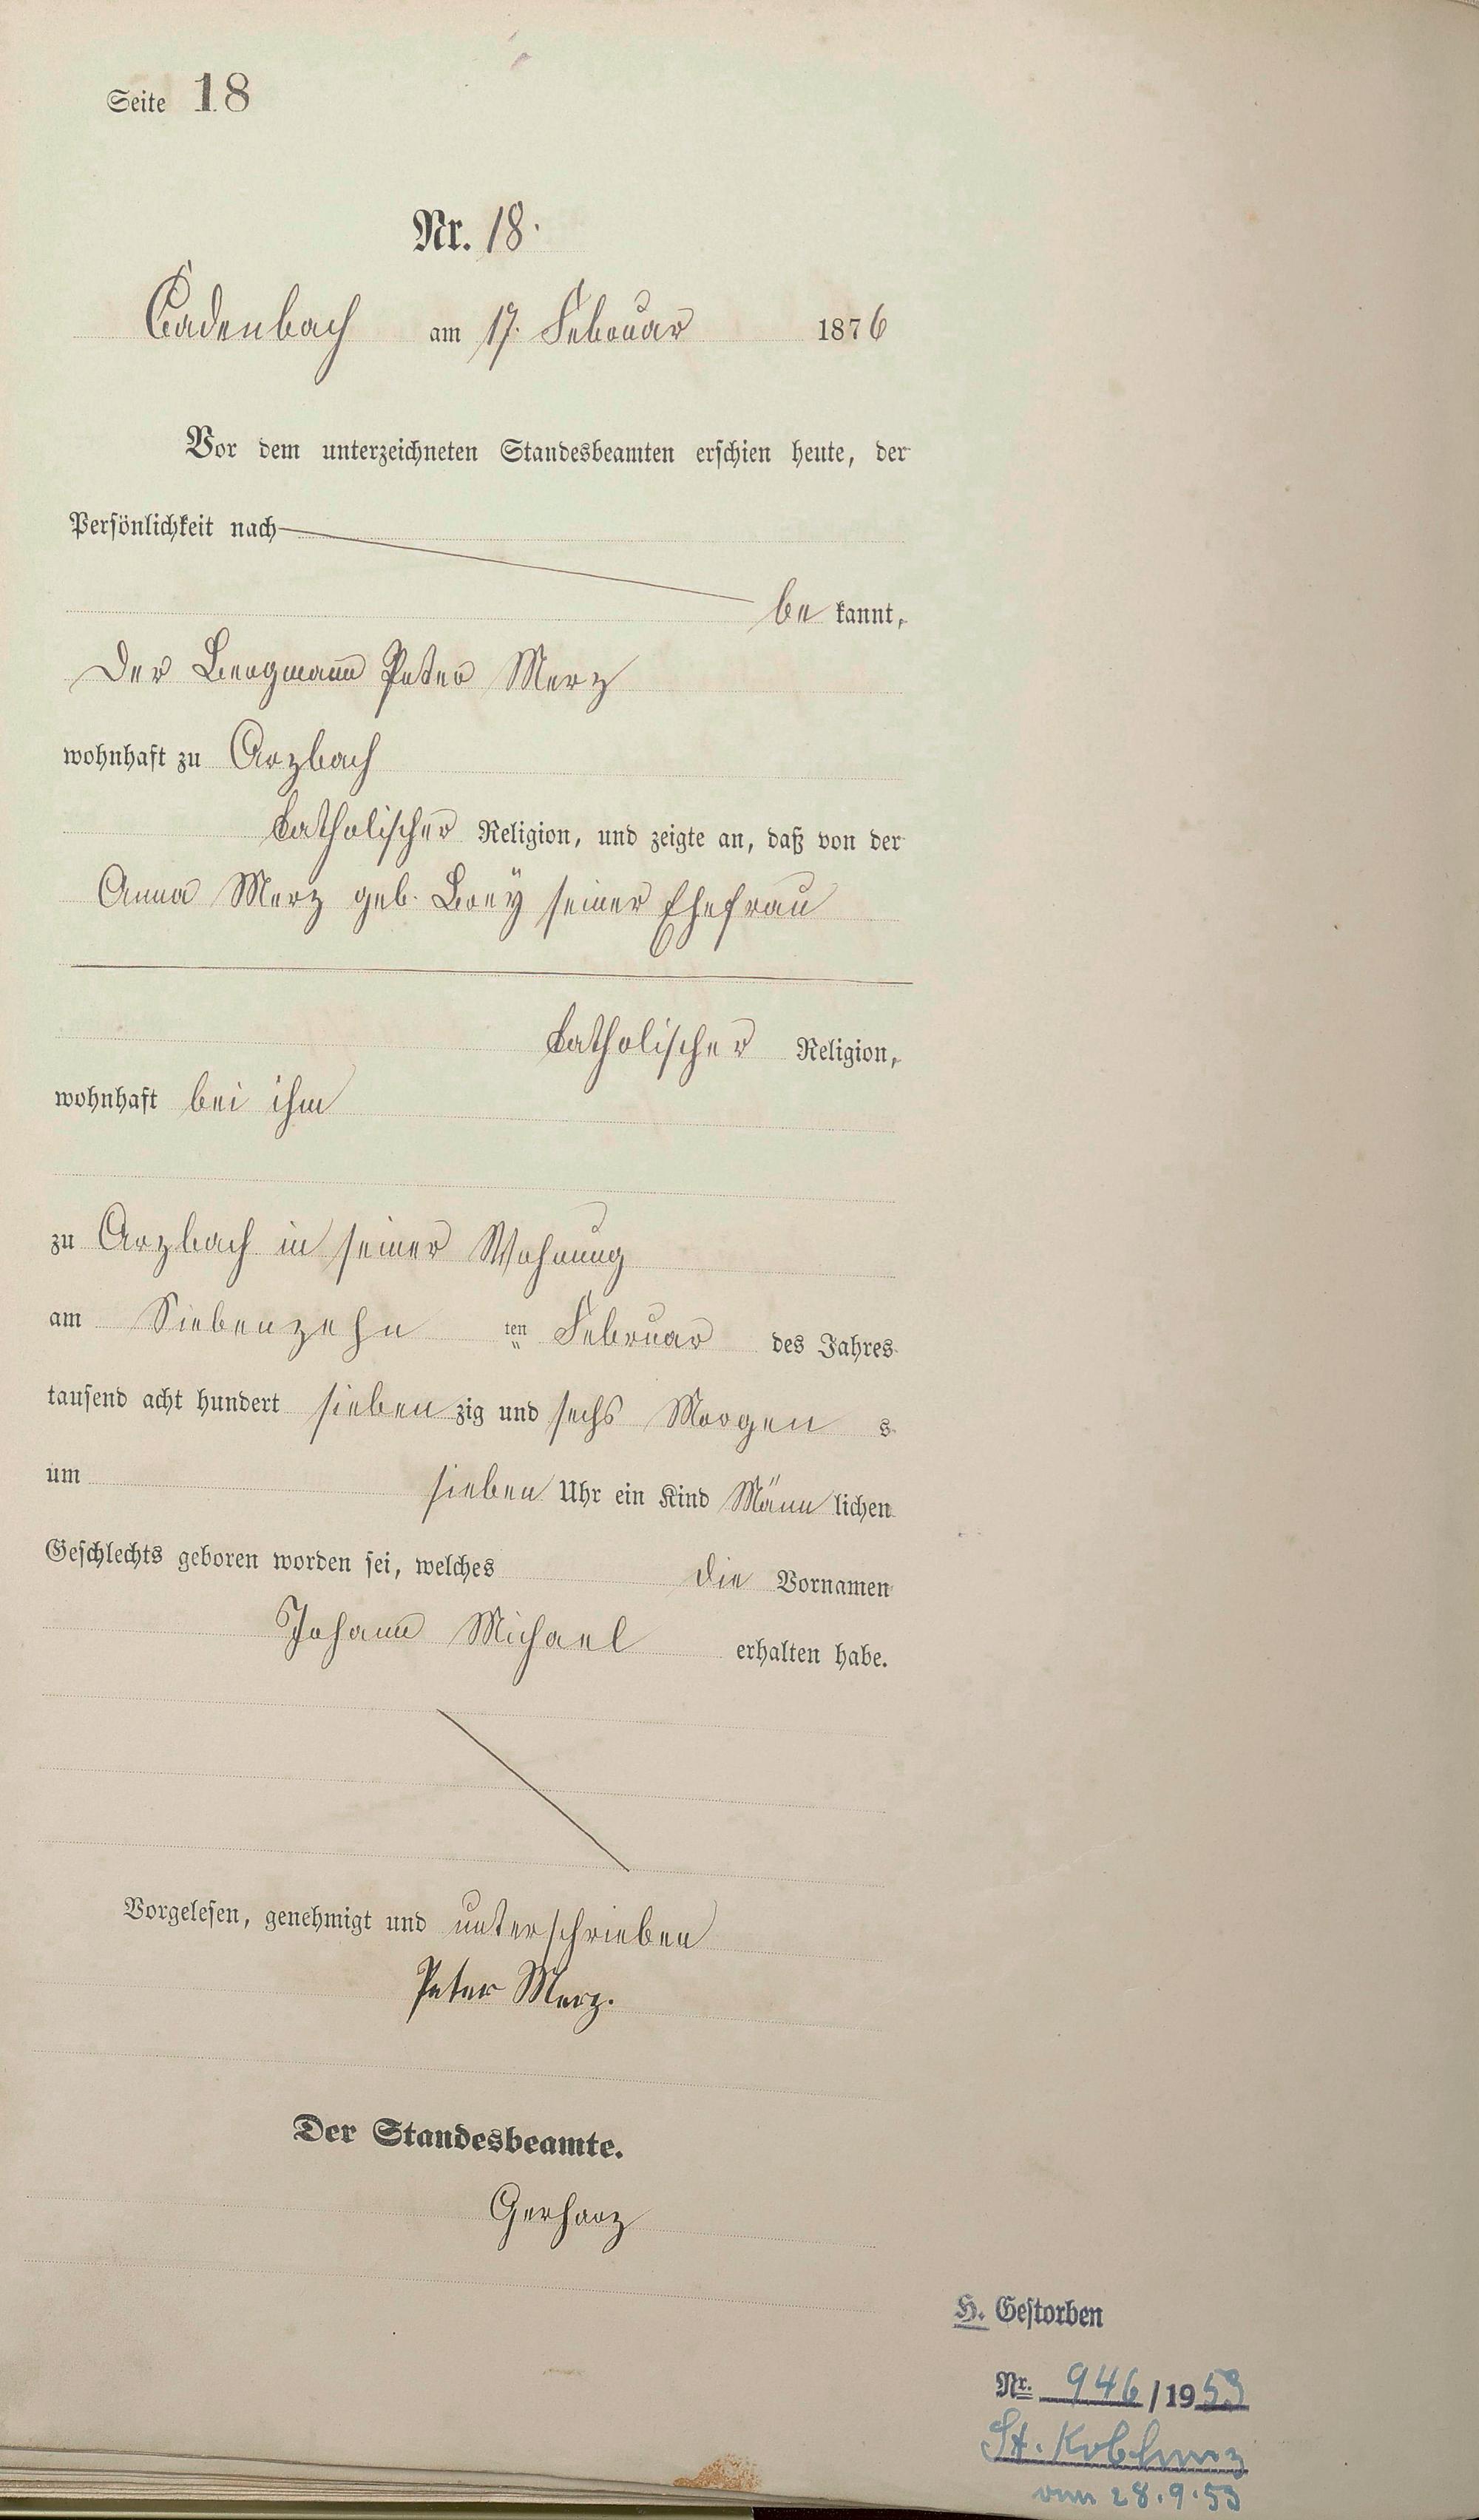 Seite 18
Nr. 18.
Cadenbach am 17. Februar 1876
Vor dem unterzeichneten Standesbeamten erschien heute, der
Persönlichkeit nach
be kannt,
Der Bergmann Peter Merz
wohnhaft zu Arzbach
katholischer Religion, und zeigte an, daß von der
Anna Merz geb. Breÿ seiner Ehefrau
katholischer Religion,
wohnhaft bei ihm
zu Arzbach in seiner Wohnung
am Siebenzehn ten Februar des Jahres
tausend acht hundert sieben zig und sechs Morgen s
um sieben Uhr ein Kind Männ lichen
Geschlechts geboren worden sei, welches die Vornamen
Johann Michael erhalten habe.
Vorgelesen, genehmigt und unterschrieben
Peter Merz.
Der Standesbeamte.
Gerharz
H. Gestorben
Nr. 946/1953
St. Koblenz
vom 28.9.53